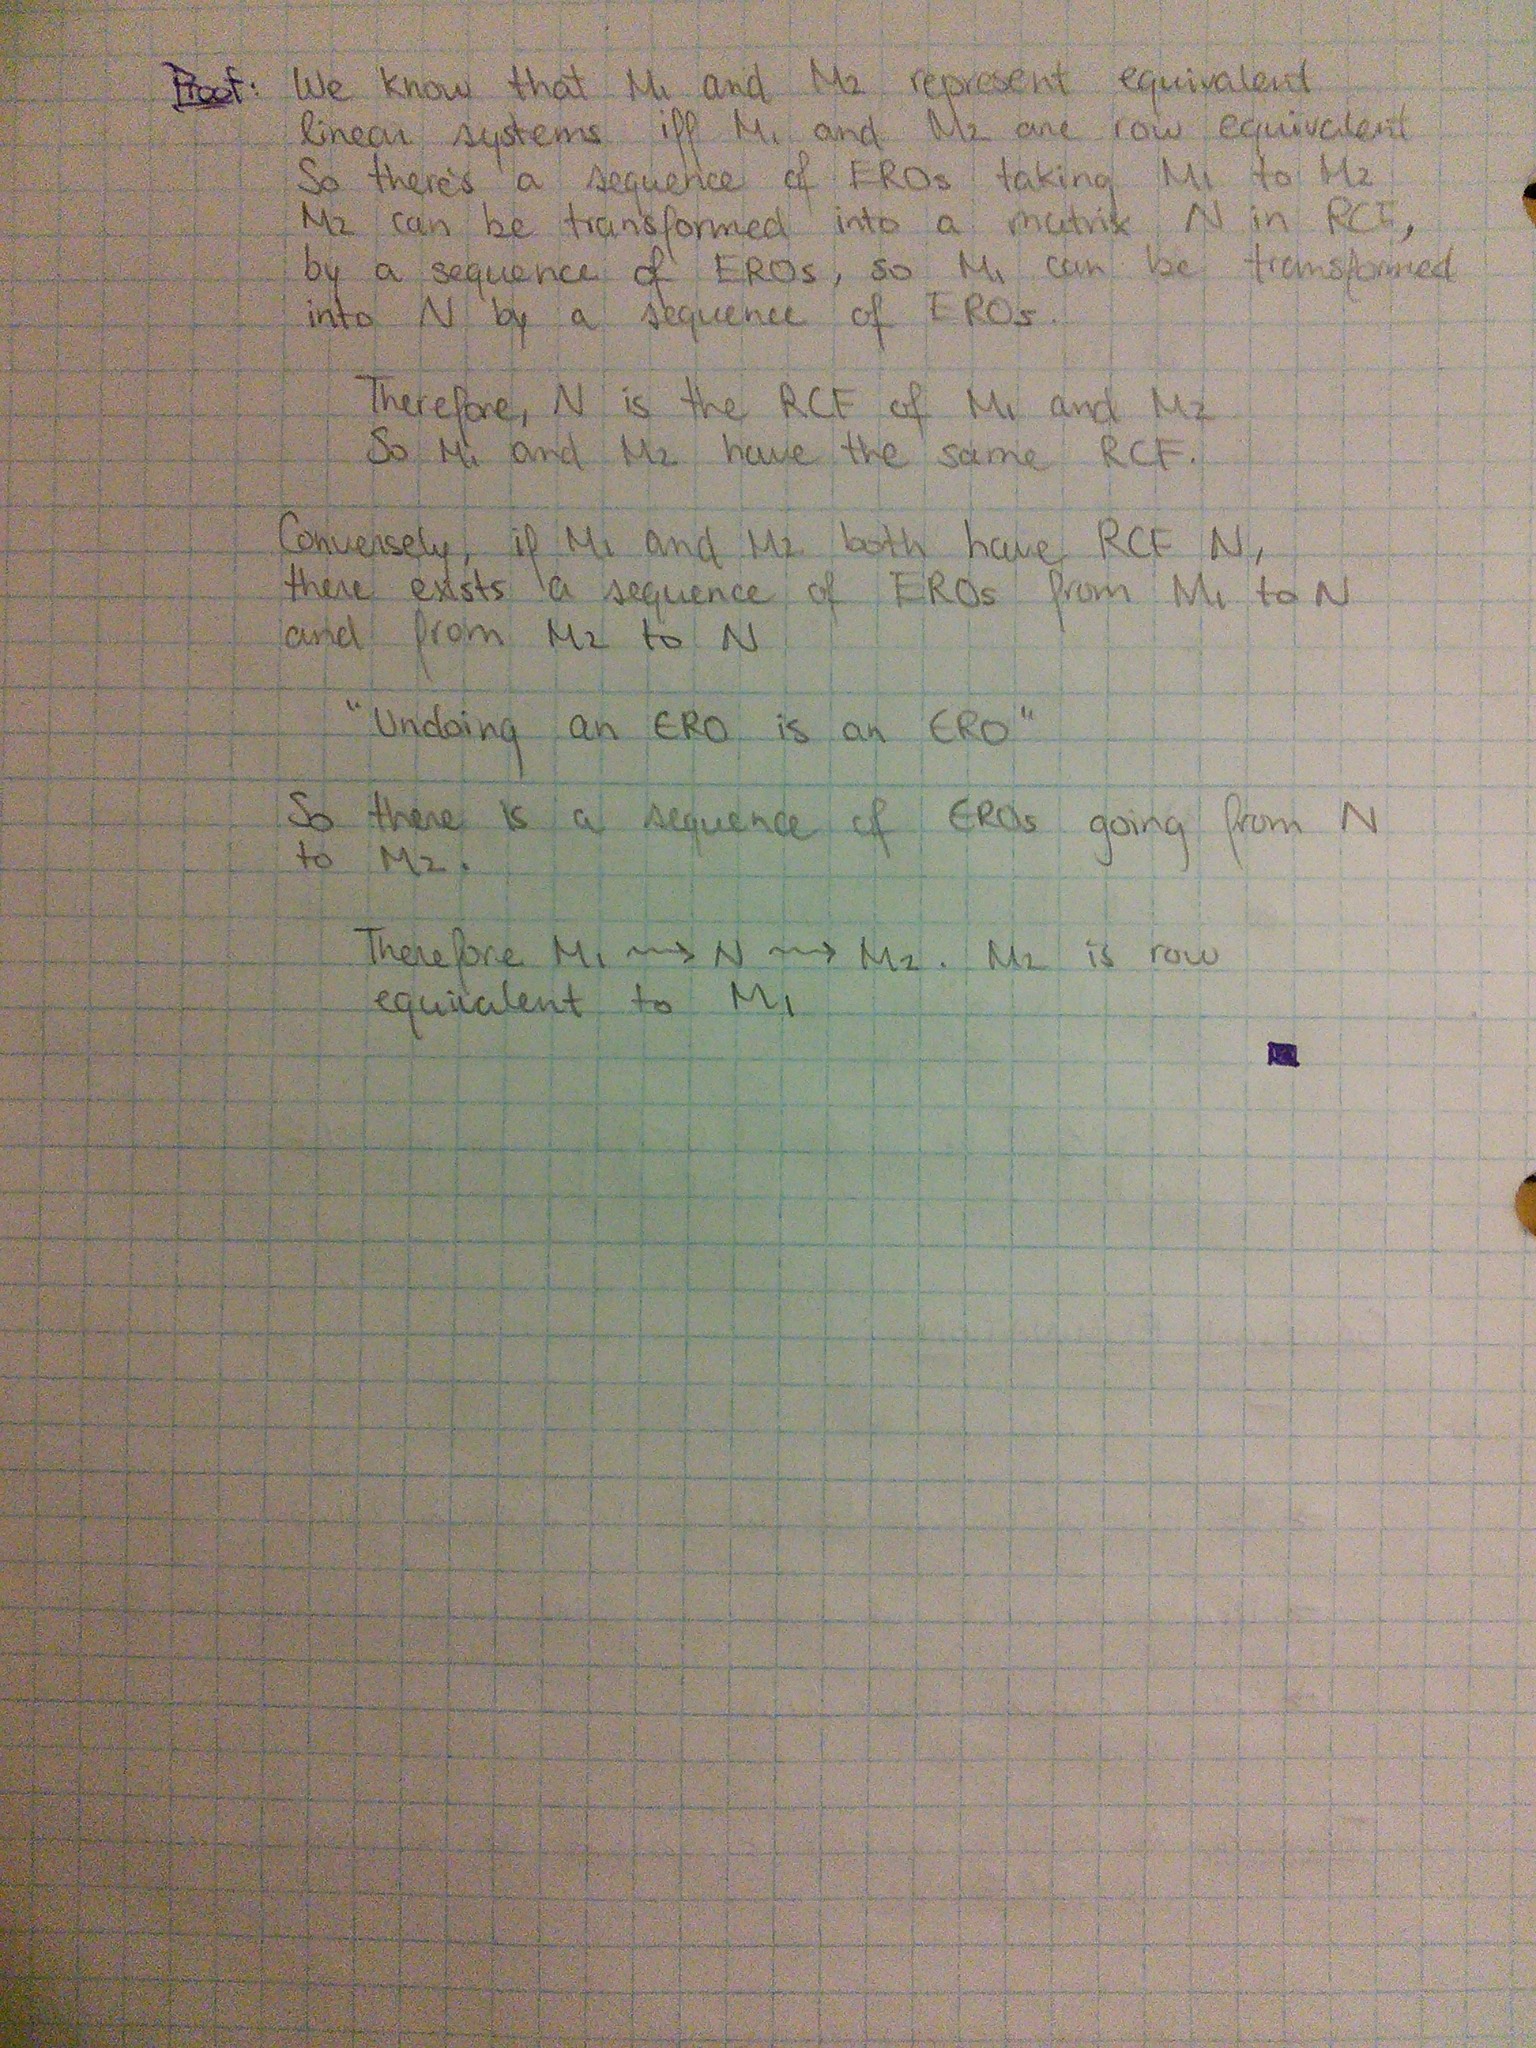 Proof: We know that M1 and M2 represent equivalent
linear systems iff M1 and M2 are row equivalent
So there's a sequence of EROs taking M1 to M2
M2 can be transformed into a matrix N in RCF,
by a sequence of EROs, so M1 can be transformed
into N by a sequence of EROs.
Therefore, N is the RCF of M1 and M2
So M1 and M2 have the same RCF.
Conversely, if M1 and M2 both have RCF N,
there exists a sequence of EROs from M1 to N
and from M2 to N
"Undoing an ERO is an ERO"
So there is a sequence of EROs going from N
to M2.
Therefore M1 ⇝ N ⇝ M2. M2 is row
equivalent to M1